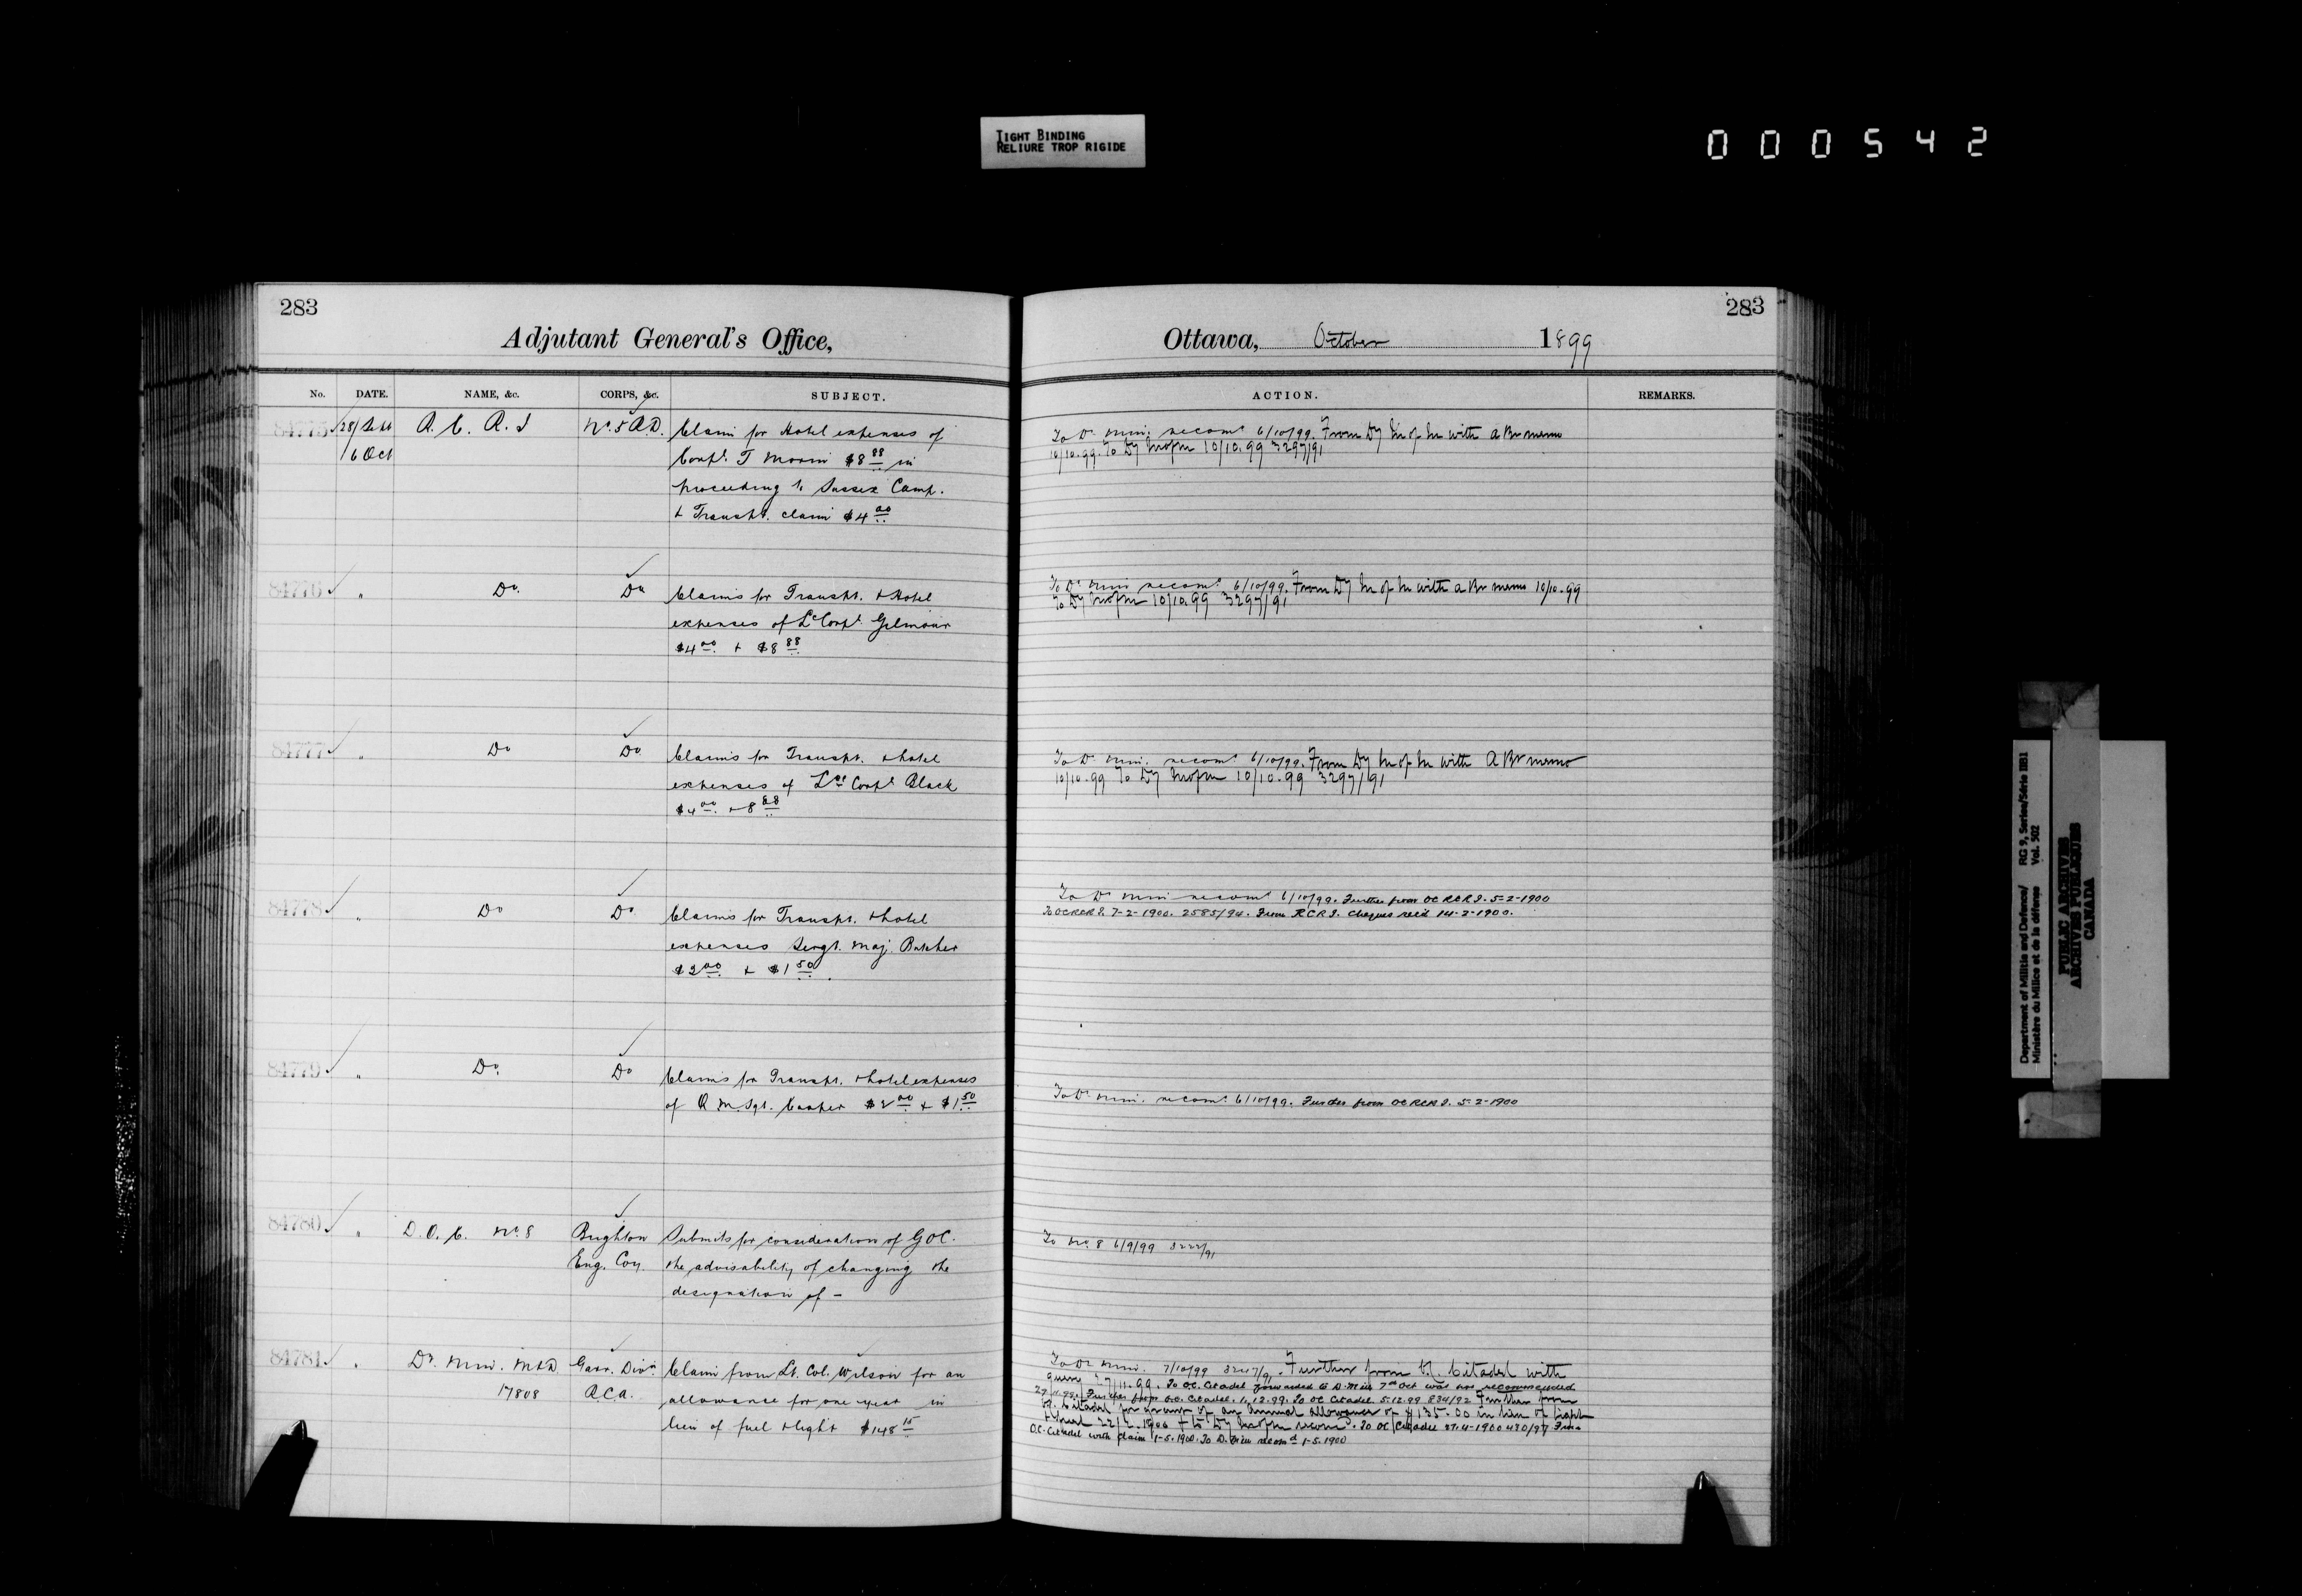 TIGHT BINDING
RELIURE TROP RIGIDE
000542
283
Adjutant General's Office,
No. DATE. NAME, &c. CORPS, &c. SUBJECT.
84775 28/Sept R. C. R. I No. 5 R.D. Claim for Hotel expenses of
6 Oct Corpl. T Morin $8 88 in
proceeding to Sussex Camp.
+ Transpt. claim $4 00
84776 " Do. Do Claims for Transpt. + Hotel
expenses of Lc Corpl. Gilmour
$4 00 + $8 88
84777 " Do Do Claims for Transpt. + hotel
expenses of Lce Corpl Black
$4 00 + 8 88
84778 " Do Do Claims for Transpt. + hotel
expenses Sergt. Maj. Butcher
$2 00 + $1 50
84779 " Do. Do Claims for Transpt. + hotel expenses
of Q M. Sgt. $2 00 + $1 50
84780 " D. O. C. No. 8 Brighton Submits for consideration of G O C.
Eng. Coy. the advisability of changing the
designation of -
84781 " Dy. Min. M & D Garr. Divn Claim from Lt. Col. Wilson for an
17808 R C A. allowance for one year in
lieu of fuel + light $148 15
283
Ottawa, October 1899
ACTION. REMARKS.
To Dy. Min. recomd 6/10/99. From Dy M of M with a Br memo
10/10.99. To Dy M of M 10/10.99 3297/91
To Dy Min recomd 6/10/99. From Dy M of M with a Br memo 10/10.99
To Dy M of M 10/10.99 3297/91
To Dy. Min. recomd 6/10/99. From Dy M of M with A Br memo
10/10.99 To Dy M of M 10/10.99 3297/91
To Dy Min recomd 6/10/99. Further from OC RCR I. 5-2-1900
To OC RCR I. 7-2-1900. 2585/94. From RCR I. Cheques recd 14-2-1900.
To Dy. Min. recomd 6/10/99. Further from OC RCR I. 5-2-1900
To No. 8 6/9/99 /91
To Dy Min. 7/10/99 3247/91. Further from Citadel with
query 27/11.99. To OC. Citadel forwarded to D. Min 7th Oct was not recommended
29.11.99. Further from O.C. Citadel. 1.12.99. To OC Citadel 5.12.99 834/92 Further from
Citadel for an annual allowance of $135.00 in lieu of light
+ fuel 22/2.1900 + to Dy M of M recomd. To OC Citadel 27.4-1900 430/97 From
O.C. Citadel with claim 1-5.1900. To D. Min recomd 1-5.1900
Department of Militia and Defence/ RG 9, Series/Série IIB1
Ministère du Milice et de la défense Vol. 502
PUBLIC ARCHIVES
ARCHIVES PUBLIQUES
CANADA